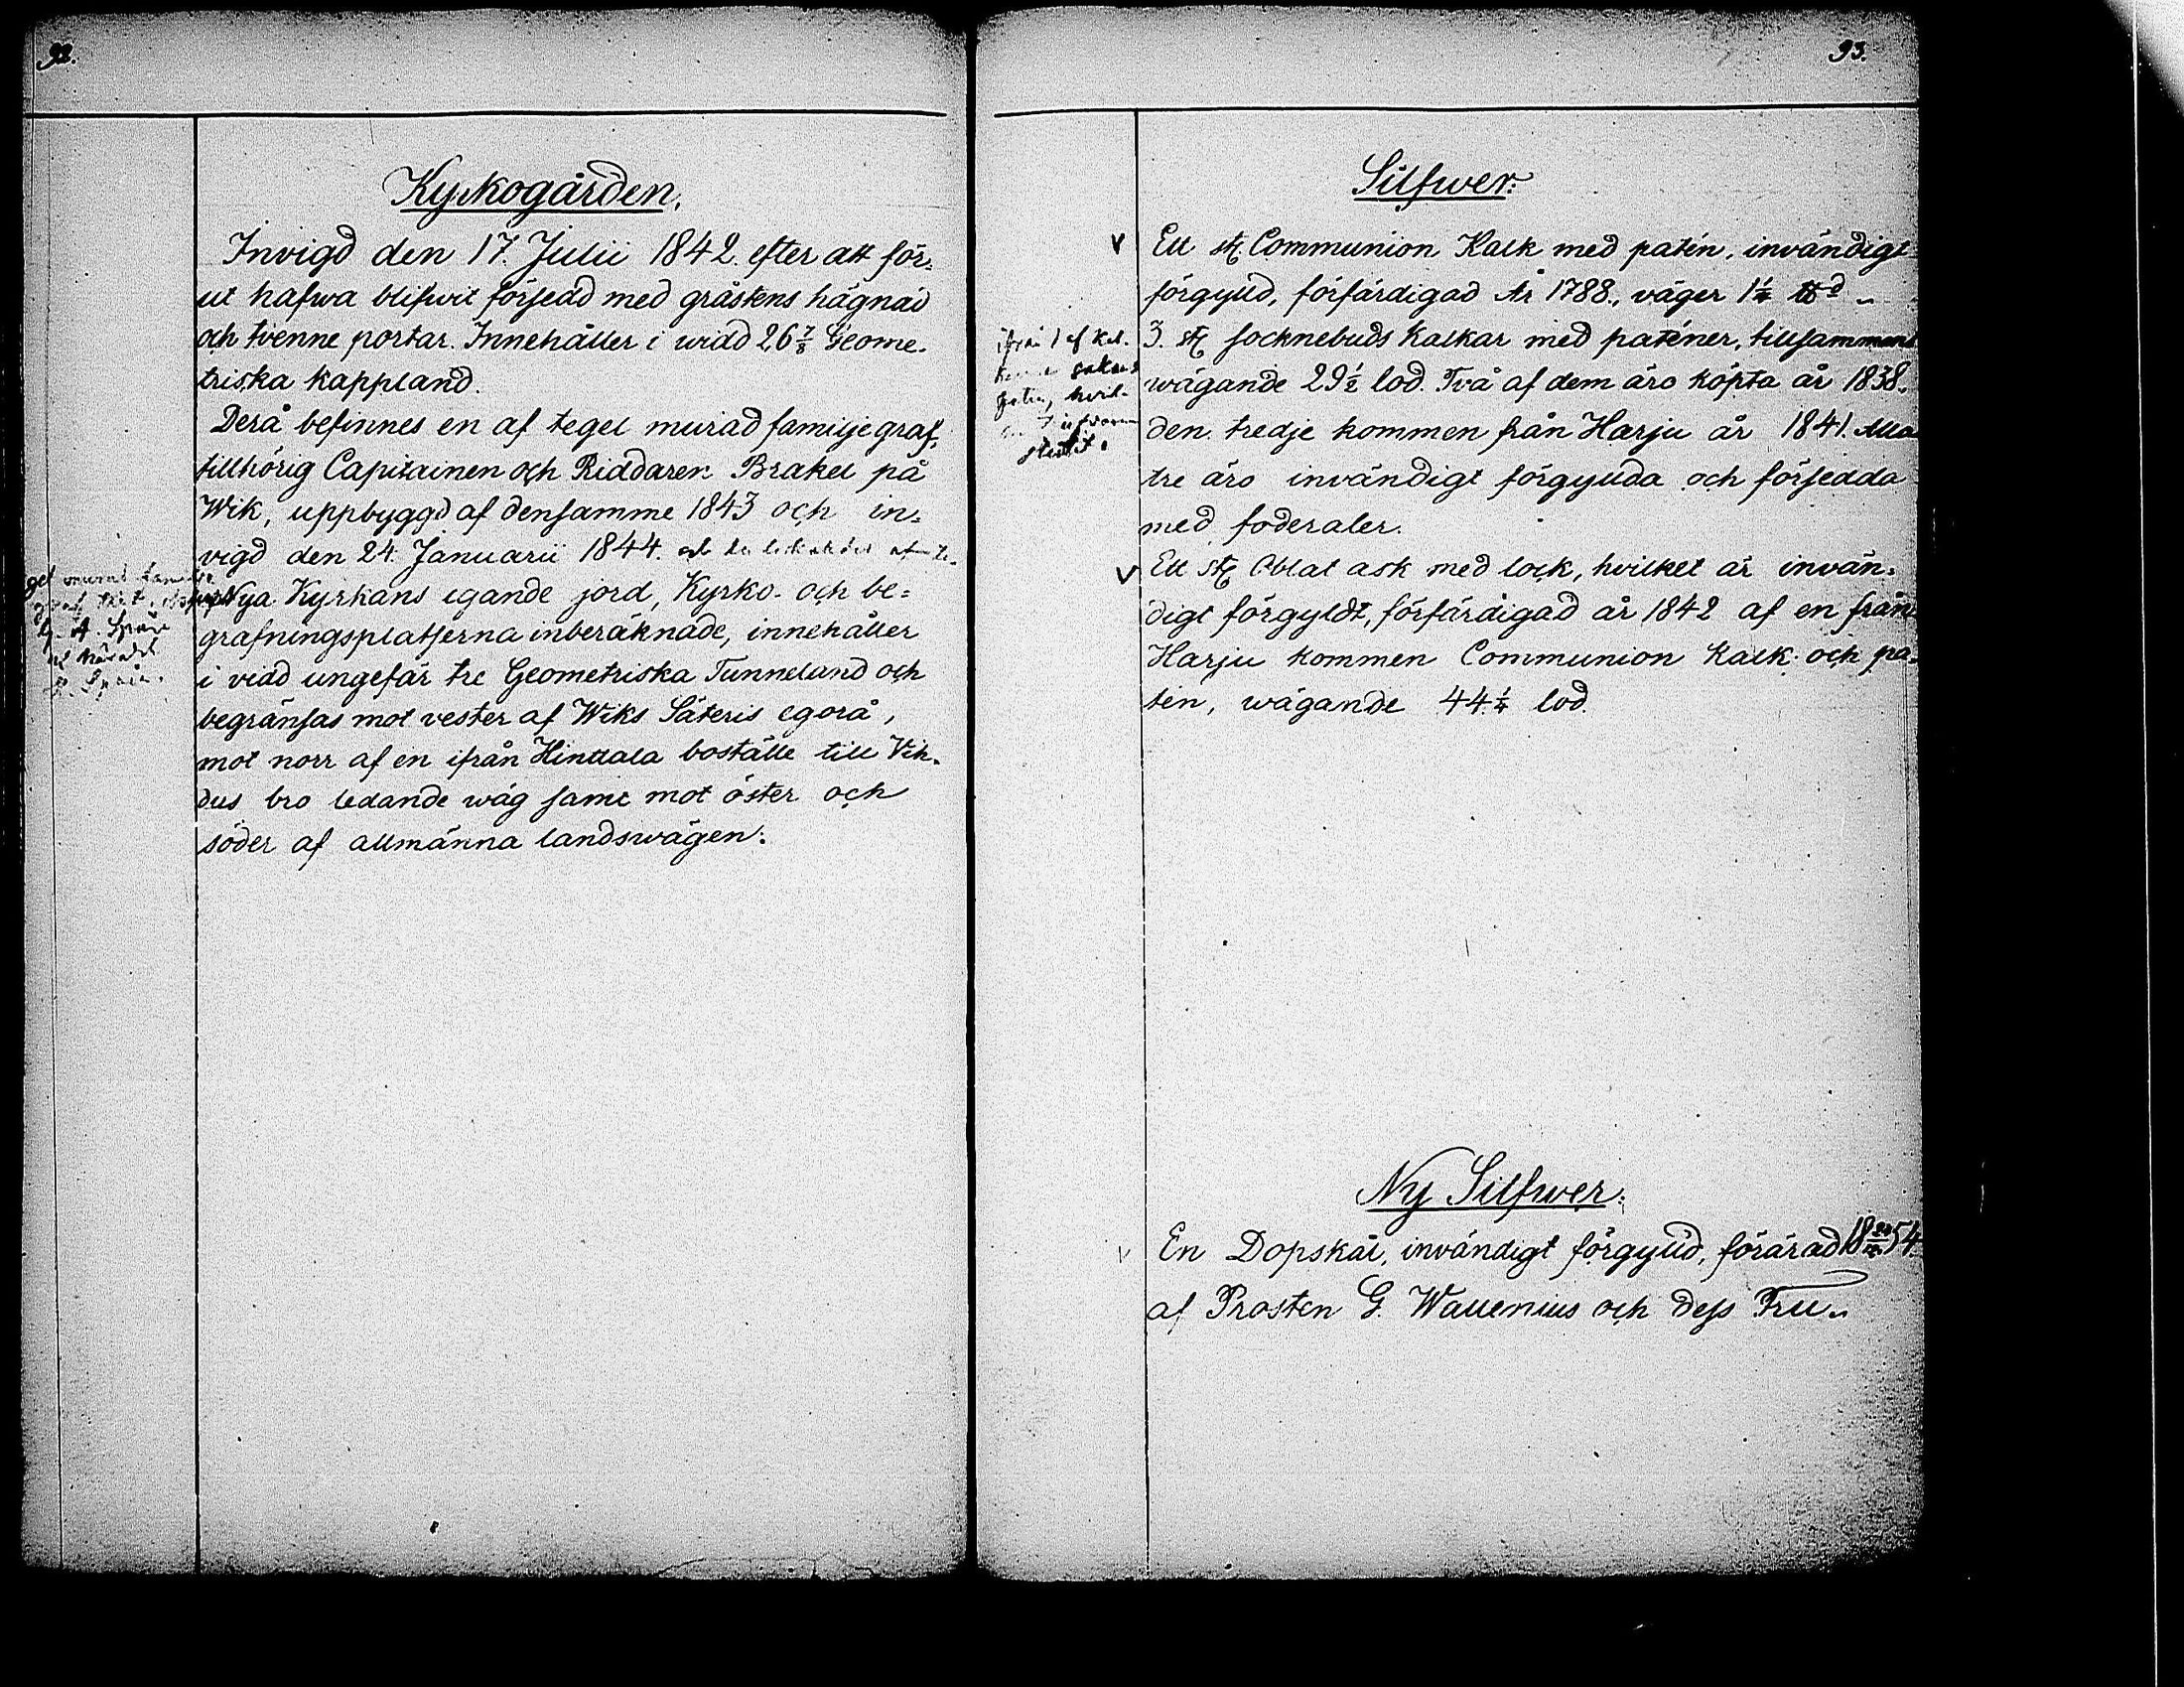 92.
Kyrkogården.
Invigd den 17. Julii 1842. efter att för=
ut hafwa blifwit försedd med gråstens hägnad
och tvenne portar. Innehåller i widd 26 7/8 Geome=
triska kappland.
Derå befinnes en af tegel murad familje graf,
tillhörig Capitainen och Riddaren Brakel på
Wik, uppbyggd af densamme 1843 och in=
vigd den 24. Januarii 1844.
Nya Kyrkans egande jord, Kyrko- och be=
grafningsplatserna inberäknade, innehåller
i vidd ungefär tre Geometriska Tunneland och
begränsas mot vester af Wiks Säteris egorå,
mot norr af en ifrån Hinttala boställe till Vih=
dus bro ledande wäg samt mot öster och
söder af allmänna landswägen.
93.
Silfwer.
Ett st. Communion Kalk med patén, invändigt
förgylld, förfärdigad År 1788., väger 1 1/4
3. st. socknebuds Kalkar med paténer, tillsammans
wägande 29 1/2 lod. Två af dem äro köpta år 1838.
den tredje kommen från Harju år 1841. Alla
tre äro invändigt förgyllda och försedda
med foderaler.
Ett st. Oblat ask med lock, hvilket är invän=
digt förgyldt, förfärdigad år 1842 af en från
Harju kommen Communion Kalk och pa=
tén, wägande 44 1/4 lod.
Ny Silfwer.
En Dopskål, invändigt förgylld, förärad 1854
af Prosten G. Wallenius och dess Fru.